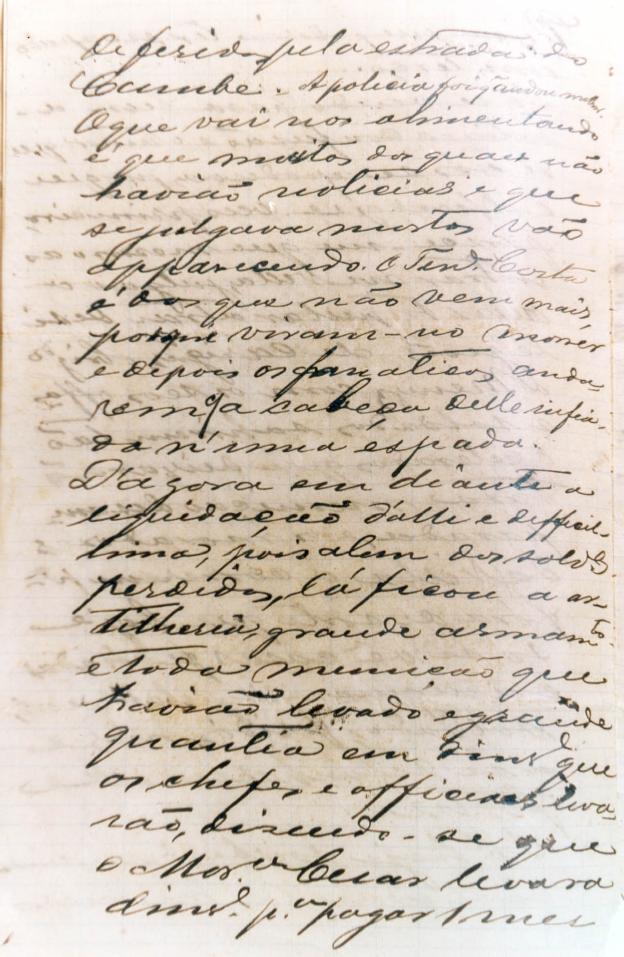 de feridos pela estrada do
Cambe. A policia foi
O que vai nos alimentando
é que muitos dos quaes não
havião noticias e que
se julgava mortos vão
apparecendo. O Ten.e Costa
é dos que não vem mais,
porque viram-no morrer
e depois os fanaticos anda-
rem a cabeça delle infia-
da n'uma éspada.
D'agora em diante a
liquidação d'alli e difficil-
lima, pois alem dos sold.os
perdidos, lá ficou a ar-
tilheria, grande armam.to
e toda munição que
havião levado e grande
quantia em dinh.o que
os chefes e officiaes leva-
rão, dizendo-se que
o Mor.a Cesar levara
dinh.o p.a pagar 1 mez